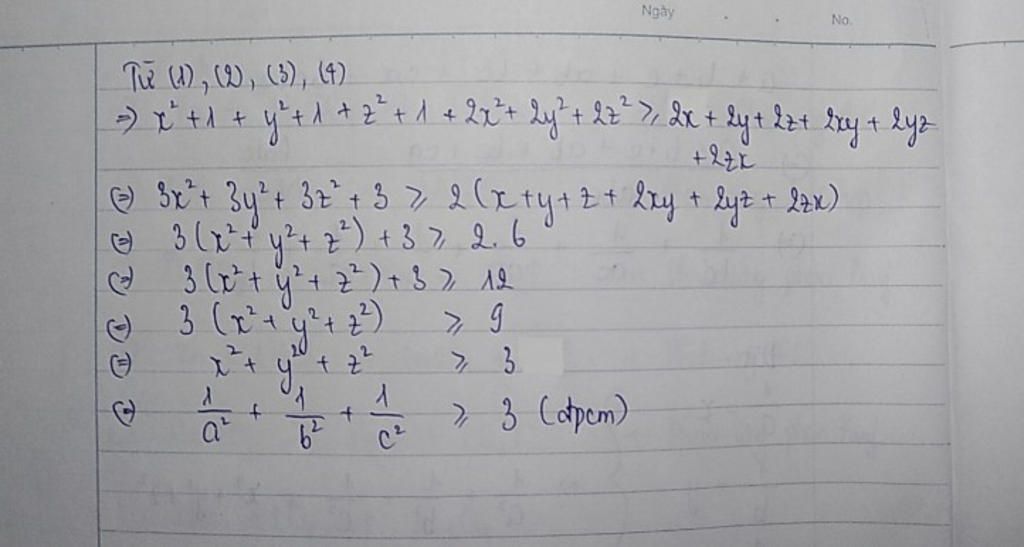 Ngày . . No.
Từ (1), (2), (3), (4)
⇒ x² + 1 + y² + 1 + z² + 1 + 2x² + 2y² + 2z² ⩾ 2x + 2y + 2z + 2xy + 2yz
+ 2zx
⇔ 3x² + 3y² + 3z² + 3 ⩾ 2(x + y + z + 2xy + 2yz + 2zx)
⇔ 3(x² + y² + z²) + 3 ⩾ 2.6
⇔ 3(x² + y² + z²) + 3 ⩾ 12
⇔ 3(x² + y² + z²) ⩾ 9
⇔ x² + y² + z² ⩾ 3
⇔ 1/a² + 1/b² + 1/c² ⩾ 3 (đpcm)